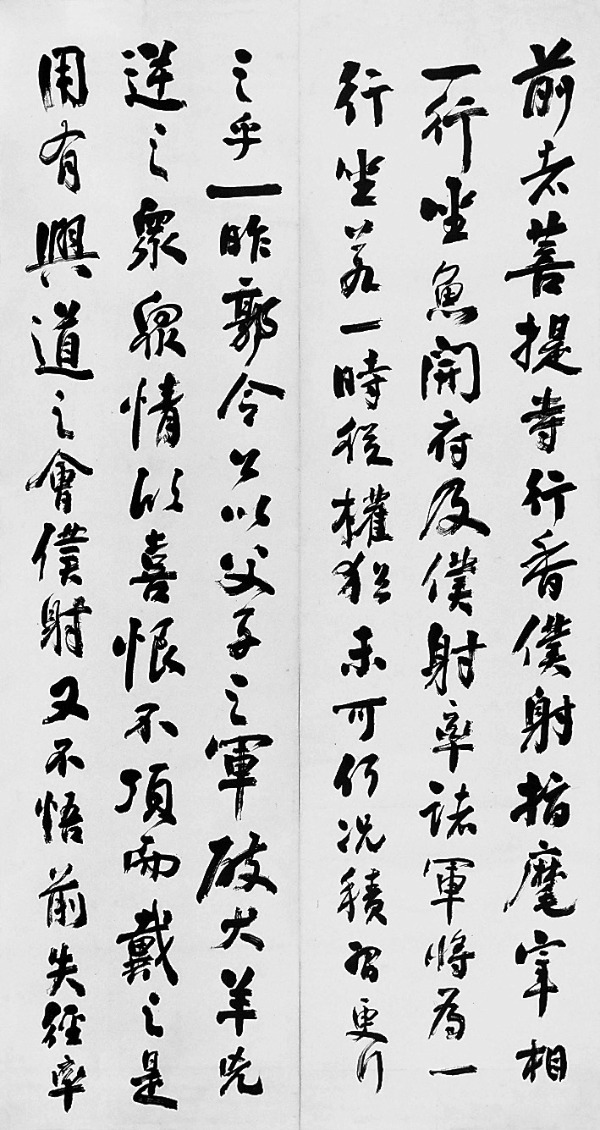 前者菩提寺行香僕射指麾宰相
一行坐魚開府及僕射率諸軍將為一
行坐若一時從權猶未可何況積習更行
之乎一昨郭令公以父子之軍破犬羊兇
逆之眾眾情欣喜恨不頂而戴之是
用有興道之會僕射又不悟前失徑率